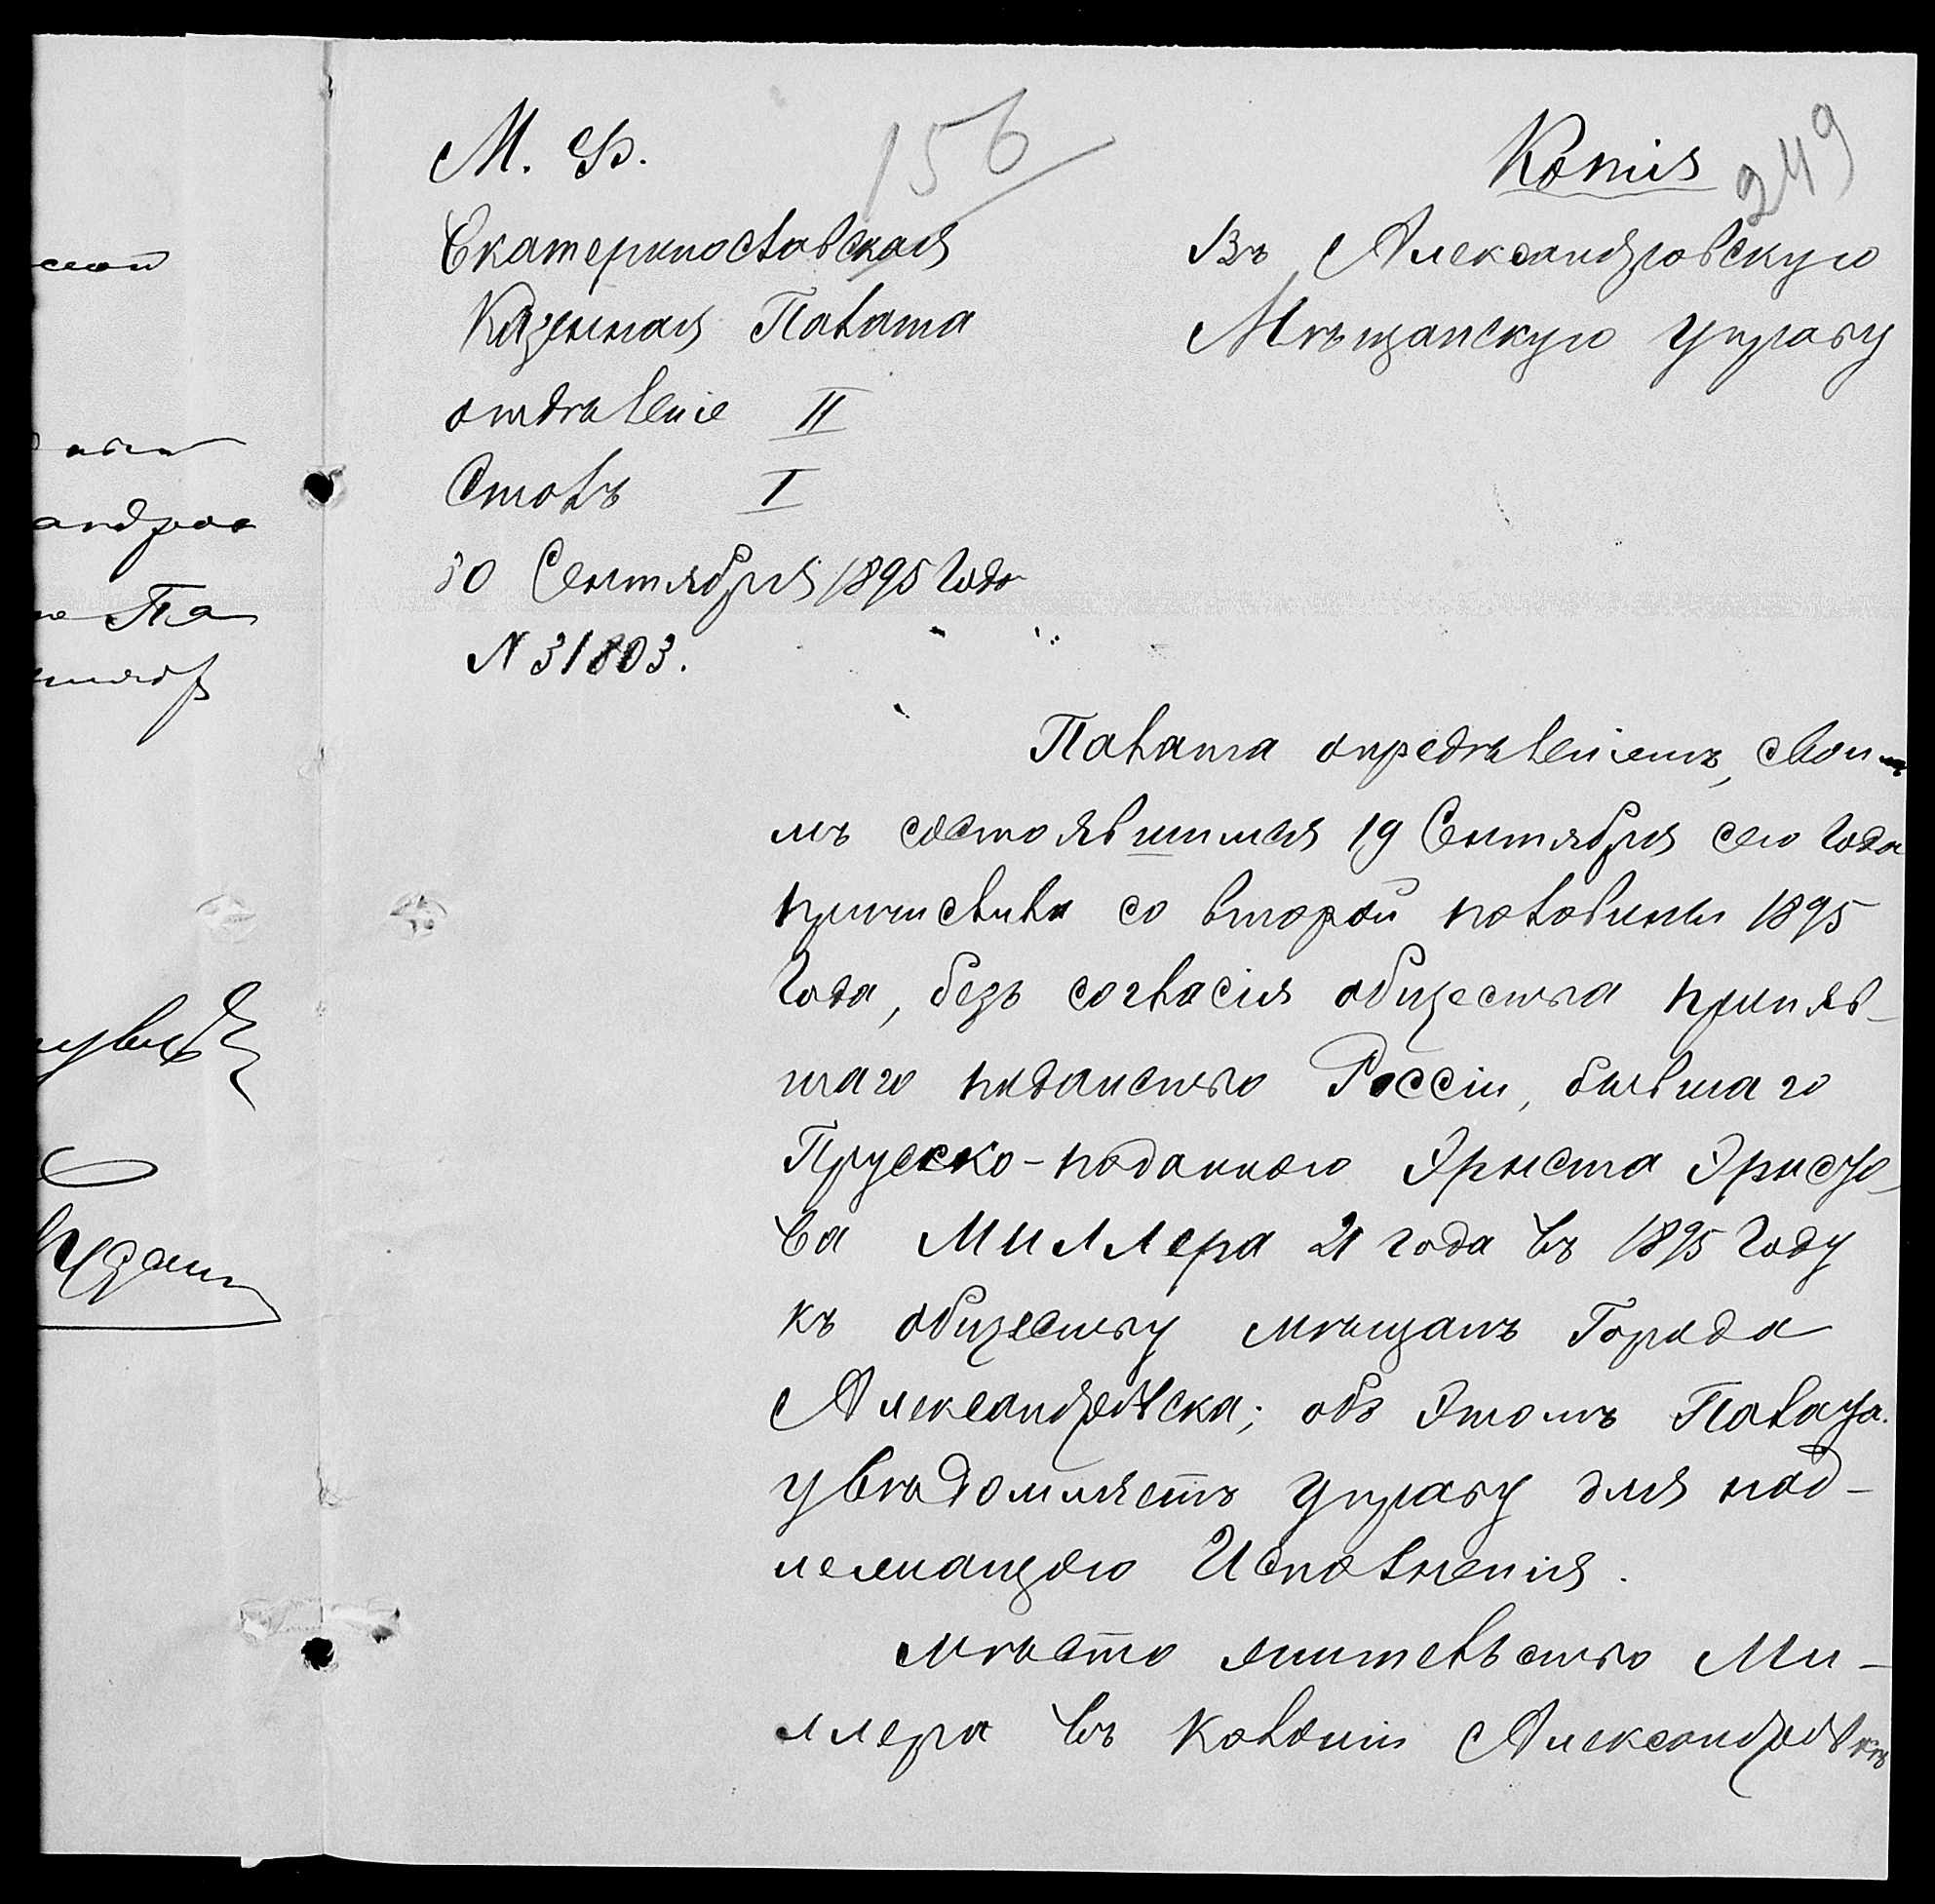 156
Копія
249
М. Ф.
Екатеринославская
Казенная Палата
отдѣленіе II
Столъ I
30 Сентября 1895 года
N 31803.
Въ Александровскую
Мѣщанскую управу
Палата опредѣленіемъ, свои-
мъ состоявшимся 19 Сентября сего года
причислила со второй половины 1895
года, безъ согласія общества приняв-
шаго подданство Россіи, бывшаго
Прусско-поданного Эрнста Эрнсто-
ва Миллера 21 года въ 1895 году
къ обществу мѣщанъ Города
Александровска; объ этомъ Палата
увѣдомляетъ управу для над-
лежащого Исполненія.
мѣсто жительство Ми-
ллера въ Колоніи Александровкѣ
ской
андров
Па